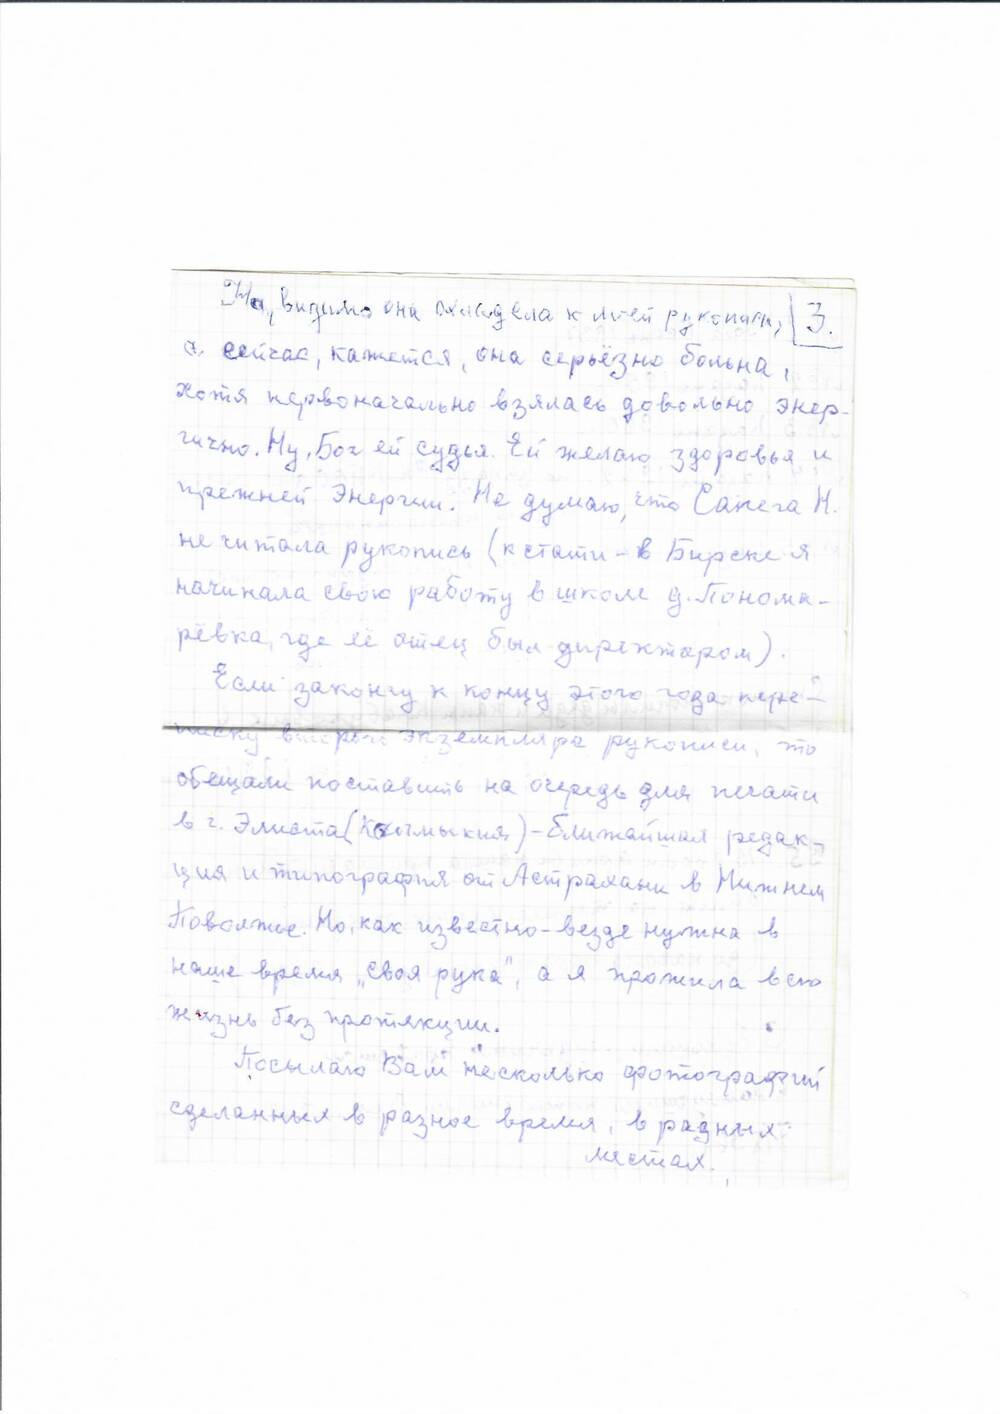 Но, видимо она охладела к моей рукописи, 3.
а сейчас, кажется, она серьёзно больна,
хотя первоначально взялась довольно энер-
гично. Ну, Бог ей судья. Ей желаю здоровья и
прежней энергии. Не думаю, что Н.
не читала рукопись (кстати - в Бирске я
начинала свою работу в школе д. Понома-
рёвка, где её отец был директором).
Если закончу к концу этого года пере-
писку второго экземпляра рукописи, то
обещали поставить на очередь для печати
в г. Элиста (Калмыкия) - ближайшая редак-
ция и типография от Астрахани в Нижнем
Поволжье. Но, как известно - везде нужна в
наше время „своя рука", а я прожила всю
жизнь без протекции.
Посылаю Вам несколько фотографий
сделанных в разное время, в разных
местах.